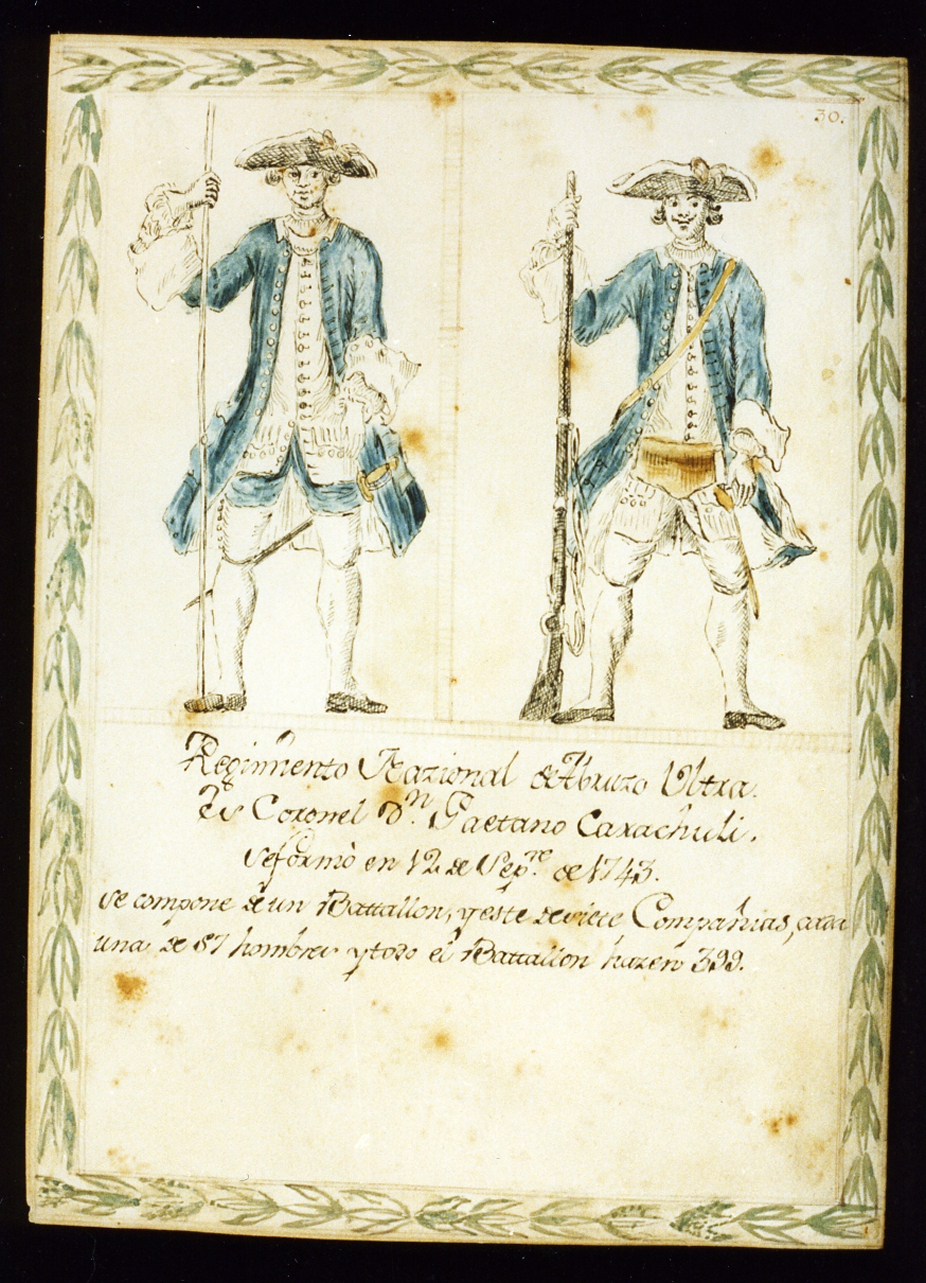 30.
Regimiento Nazional de Abruzo Ultra.
es Coronel Dn. Gaetano Carachuli.
se formò en 12 de Sepre. de 1743.
se compone de un Battallon, y este de siete Compañias, cada
una de 57 hombres y todo el Battallon hazen 399.